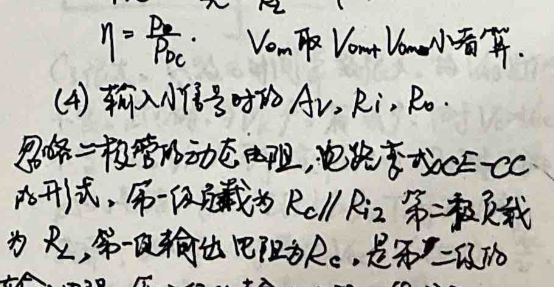 η = Po/PDC. Vom 取 Vom+ Vom- 小者算.
(4) 输入小信号时的 Av, Ri, Ro.
忽略二极管的动态电阻, 电路变成CE-CC
的形式, 第一级负载为 Rc // Ri2 第二级负载
为 RL, 第一级输出电阻为Rc, 是第二级的